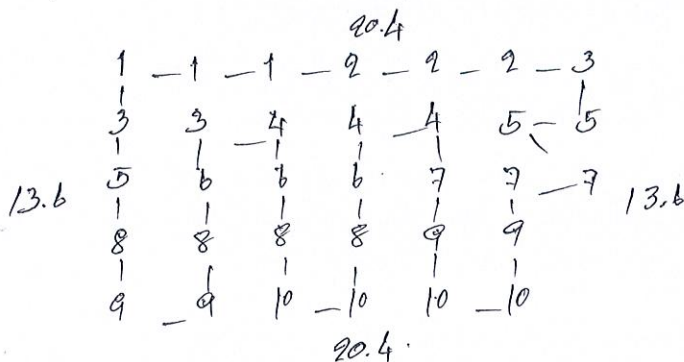 20.4
1 – 1 – 1 – 2 – 2 – 2 – 3
3 3 – 4 4 – 4 5 – 5
13.6 5 6 6 6 7 7 – 7 13.6
8 8 8 8 9 9
9 – 9 10 – 10 10 – 10
20.4.